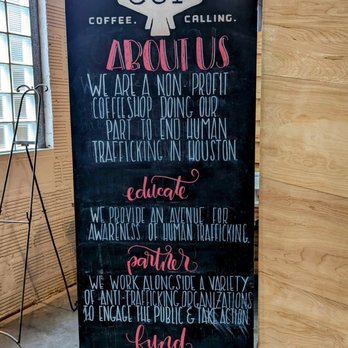 COFFEE. CALLING.
ABOUT US
WE ARE A NON-PROFIT
COFFEESHOP DOING OUR
PART TO END HUMAN
TRAFFICKING IN HOUSTON.
educate
WE PROVIDE AN AVENUE FOR
AWARENESS OF HUMAN TRAFFICKING.
partner
WE WORK ALONGSIDE A VARIETY
OF ANTI-TRAFFICKING ORGANIZATIONS
TO ENGAGE THE PUBLIC & TAKE ACTION.
fund